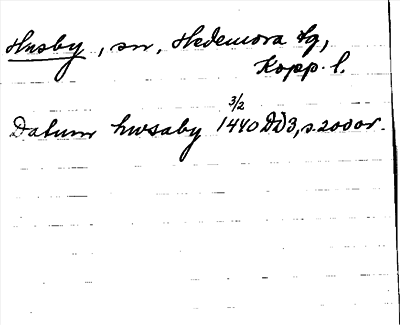 Husby, sn, Hedemora tg,
Kopp. l.
3/2
Datum hwsaby 1440 DD3, s. 200 or.